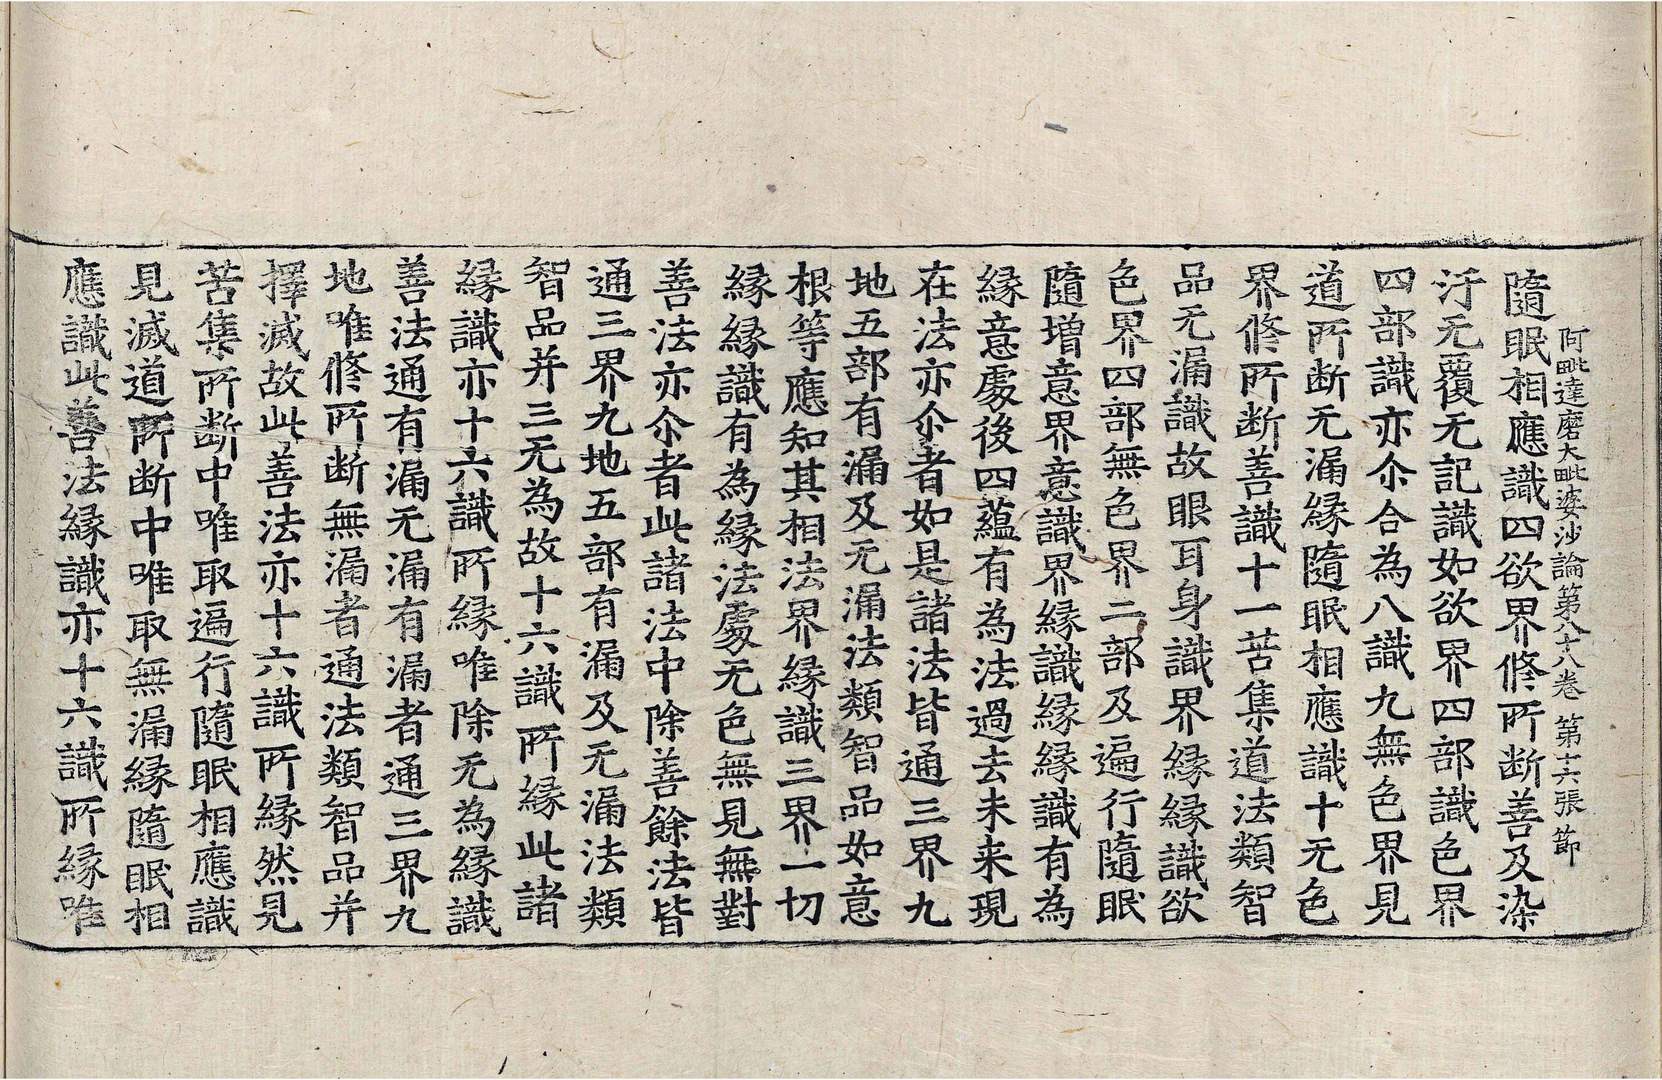 阿毗達磨大毗婆沙論第八十八卷 第十六張 節
隨眠相應識四欲界修所断善及染
汙无覆无記識如欲界四部識色界
四部識亦尒合為八識九無色界見
道所断无漏緣隨眠相應識十无色
界修所断善識十一苦集道法類智
品无漏識故眼耳身識界緣緣識欲
色界四部無色界二部及遍行隨眠
隨增意界意識界緣識緣緣識有為
緣意處後四蘊有為法過去未来現
在法亦尒者如是諸法皆通三界九
地五部有漏及无漏法類智品如意
根等應知其相法界緣識三界一切
緣緣緣識有為緣法處无色無見無對
善法亦尒者此諸法中除善餘法皆
通三界九地五部有漏及无漏法類
智品并三无為故十六識所緣此諸
緣識亦十六識所緣唯除无為緣識
善法通有漏无漏有漏者通三界九
地唯修所断無漏者通法類智品并
擇滅故此善法亦十六識所緣然見
苦集所断中唯取遍行隨眠相應識
見滅道所断中唯取無漏緣隨眠相
應識此善法緣識亦十六識所緣唯